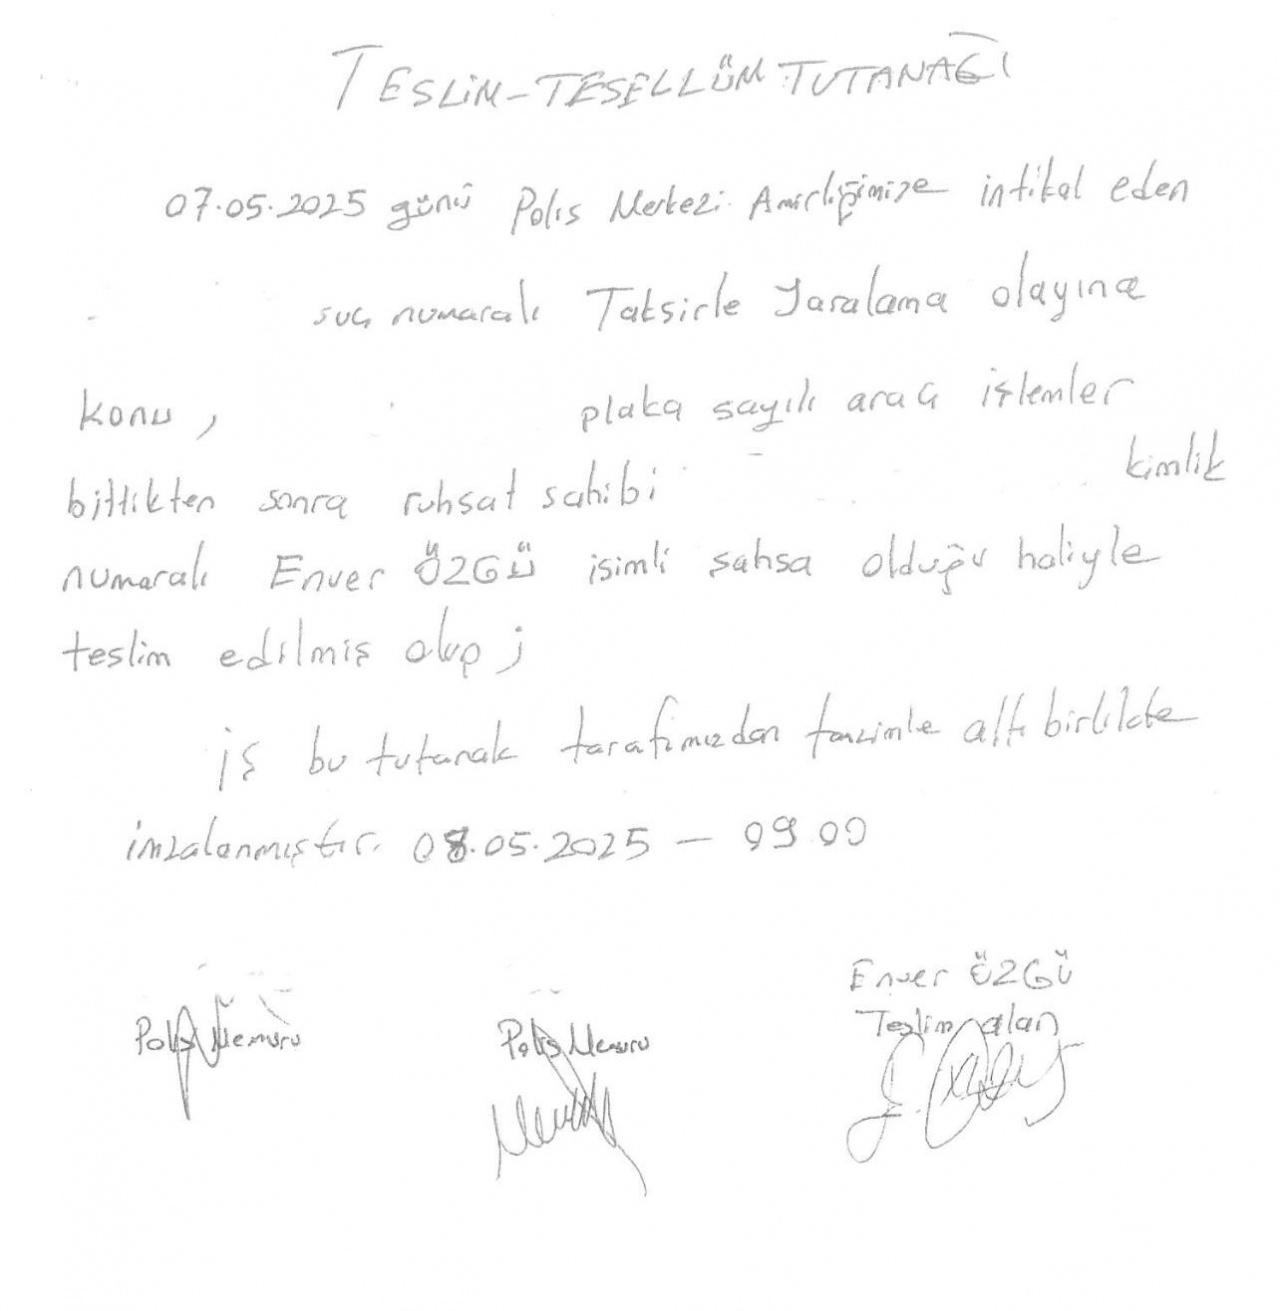 TESLİM-TESELLÜM TUTANAĞI
07.05.2025 günü Polis Merkezi Amirliğimize intikal eden
suç numaralı Taksirle Yaralama olayına
konu, plaka sayılı araç işlemler
bittikten sonra ruhsat sahibi kimlik
numaralı Enver ÖZGÜ isimli şahsa olduğu haliyle
teslim edilmiş olup;
iş bu tutanak tarafımızdan tanzimle altı birlikte
imzalanmıştır. 08.05.2025 - 09.00
Enver ÖZGÜ
Polis Memuru Polis Memuru Teslim alan